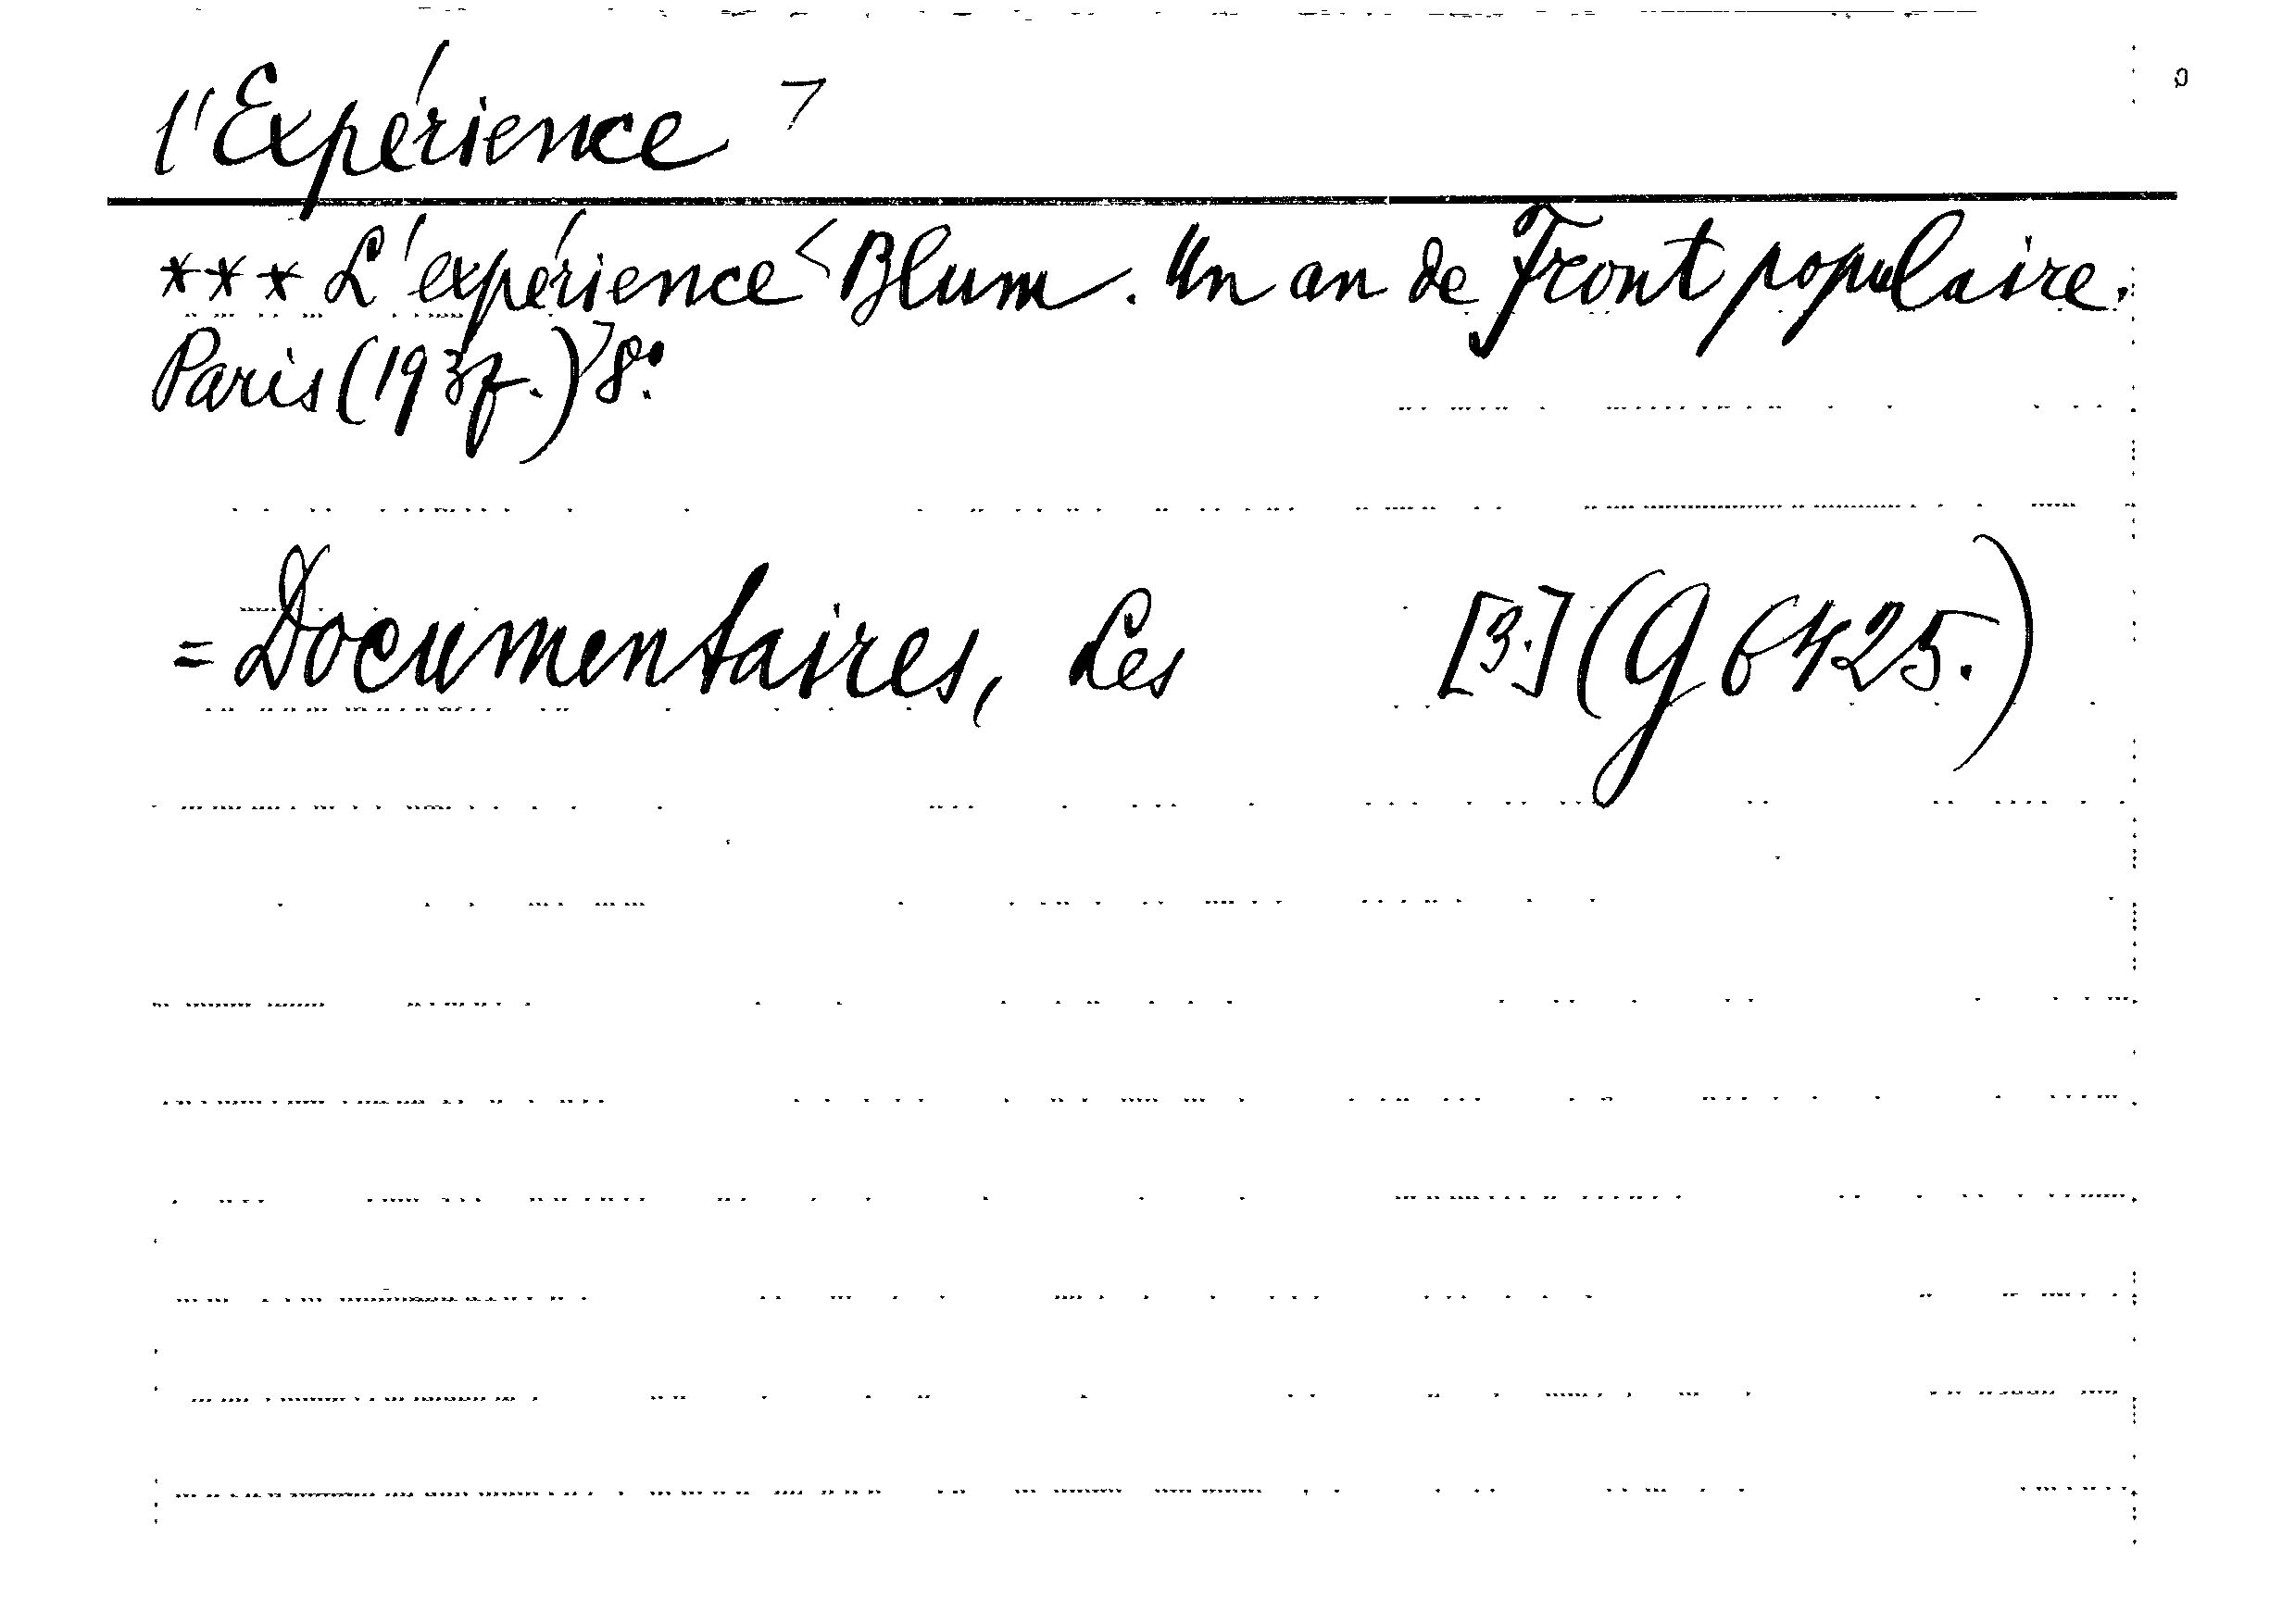 l'Expérience ⁊
*** L'expérience < Blum. Un an de Front populaire.
Paris (1937.) 8°.
= Documentaires, Les [3.] (G 6425.)